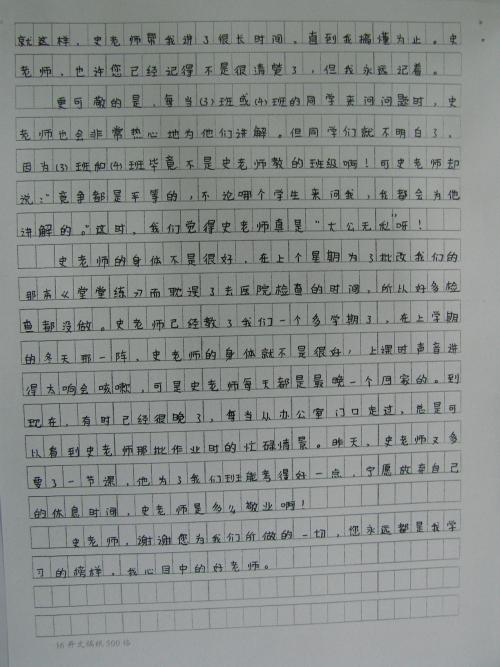 就这样，史老师帮我讲了很长时间，直到我搞懂为止。史
老师，也许您已经记得不是很清楚了，但我永远记着。
更可敬的是，每当(3)班或(4)班的同学来问问题时，史
老师也会非常热心地为他们讲解。但同学们就不明白了，
因为(3)班和(4)班毕竟不是史老师教的班级啊！可史老师却
说：“竞争都是平等的，不论哪个学生来问我，我都会为他
讲解的。”这时，我们觉得史老师真是“大公无私”呀！
史老师的身体不是很好，在上个星期为了批改我们的
那本《堂堂练》而耽误了去医院检查的时间，所以好多检
查都没做。史老师已经教了我们一个多学期了，在上学期
的冬天那一阵，史老师的身体就不是很好，上课时声音讲
得太响会咳嗽，可是史老师每天都是最晚一个回家的。到
现在，有时已经很晚了，每当从办公室门口走过，总是可
以看到史老师那批作业时的忙碌情景。昨天，史老师又多
要了一节课，他为了我们班能考得好一点，宁愿放弃自己
的休息时间，史老师是多么敬业啊！
史老师，谢谢您为我们所做的一切，您永远都是我学
习的榜样，我心目中的好老师。
16开文稿纸500格